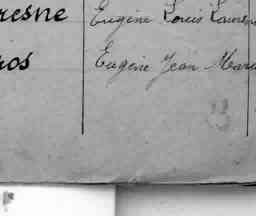 resne Eugène Louis Lauren
ros Eugène Jean Marie